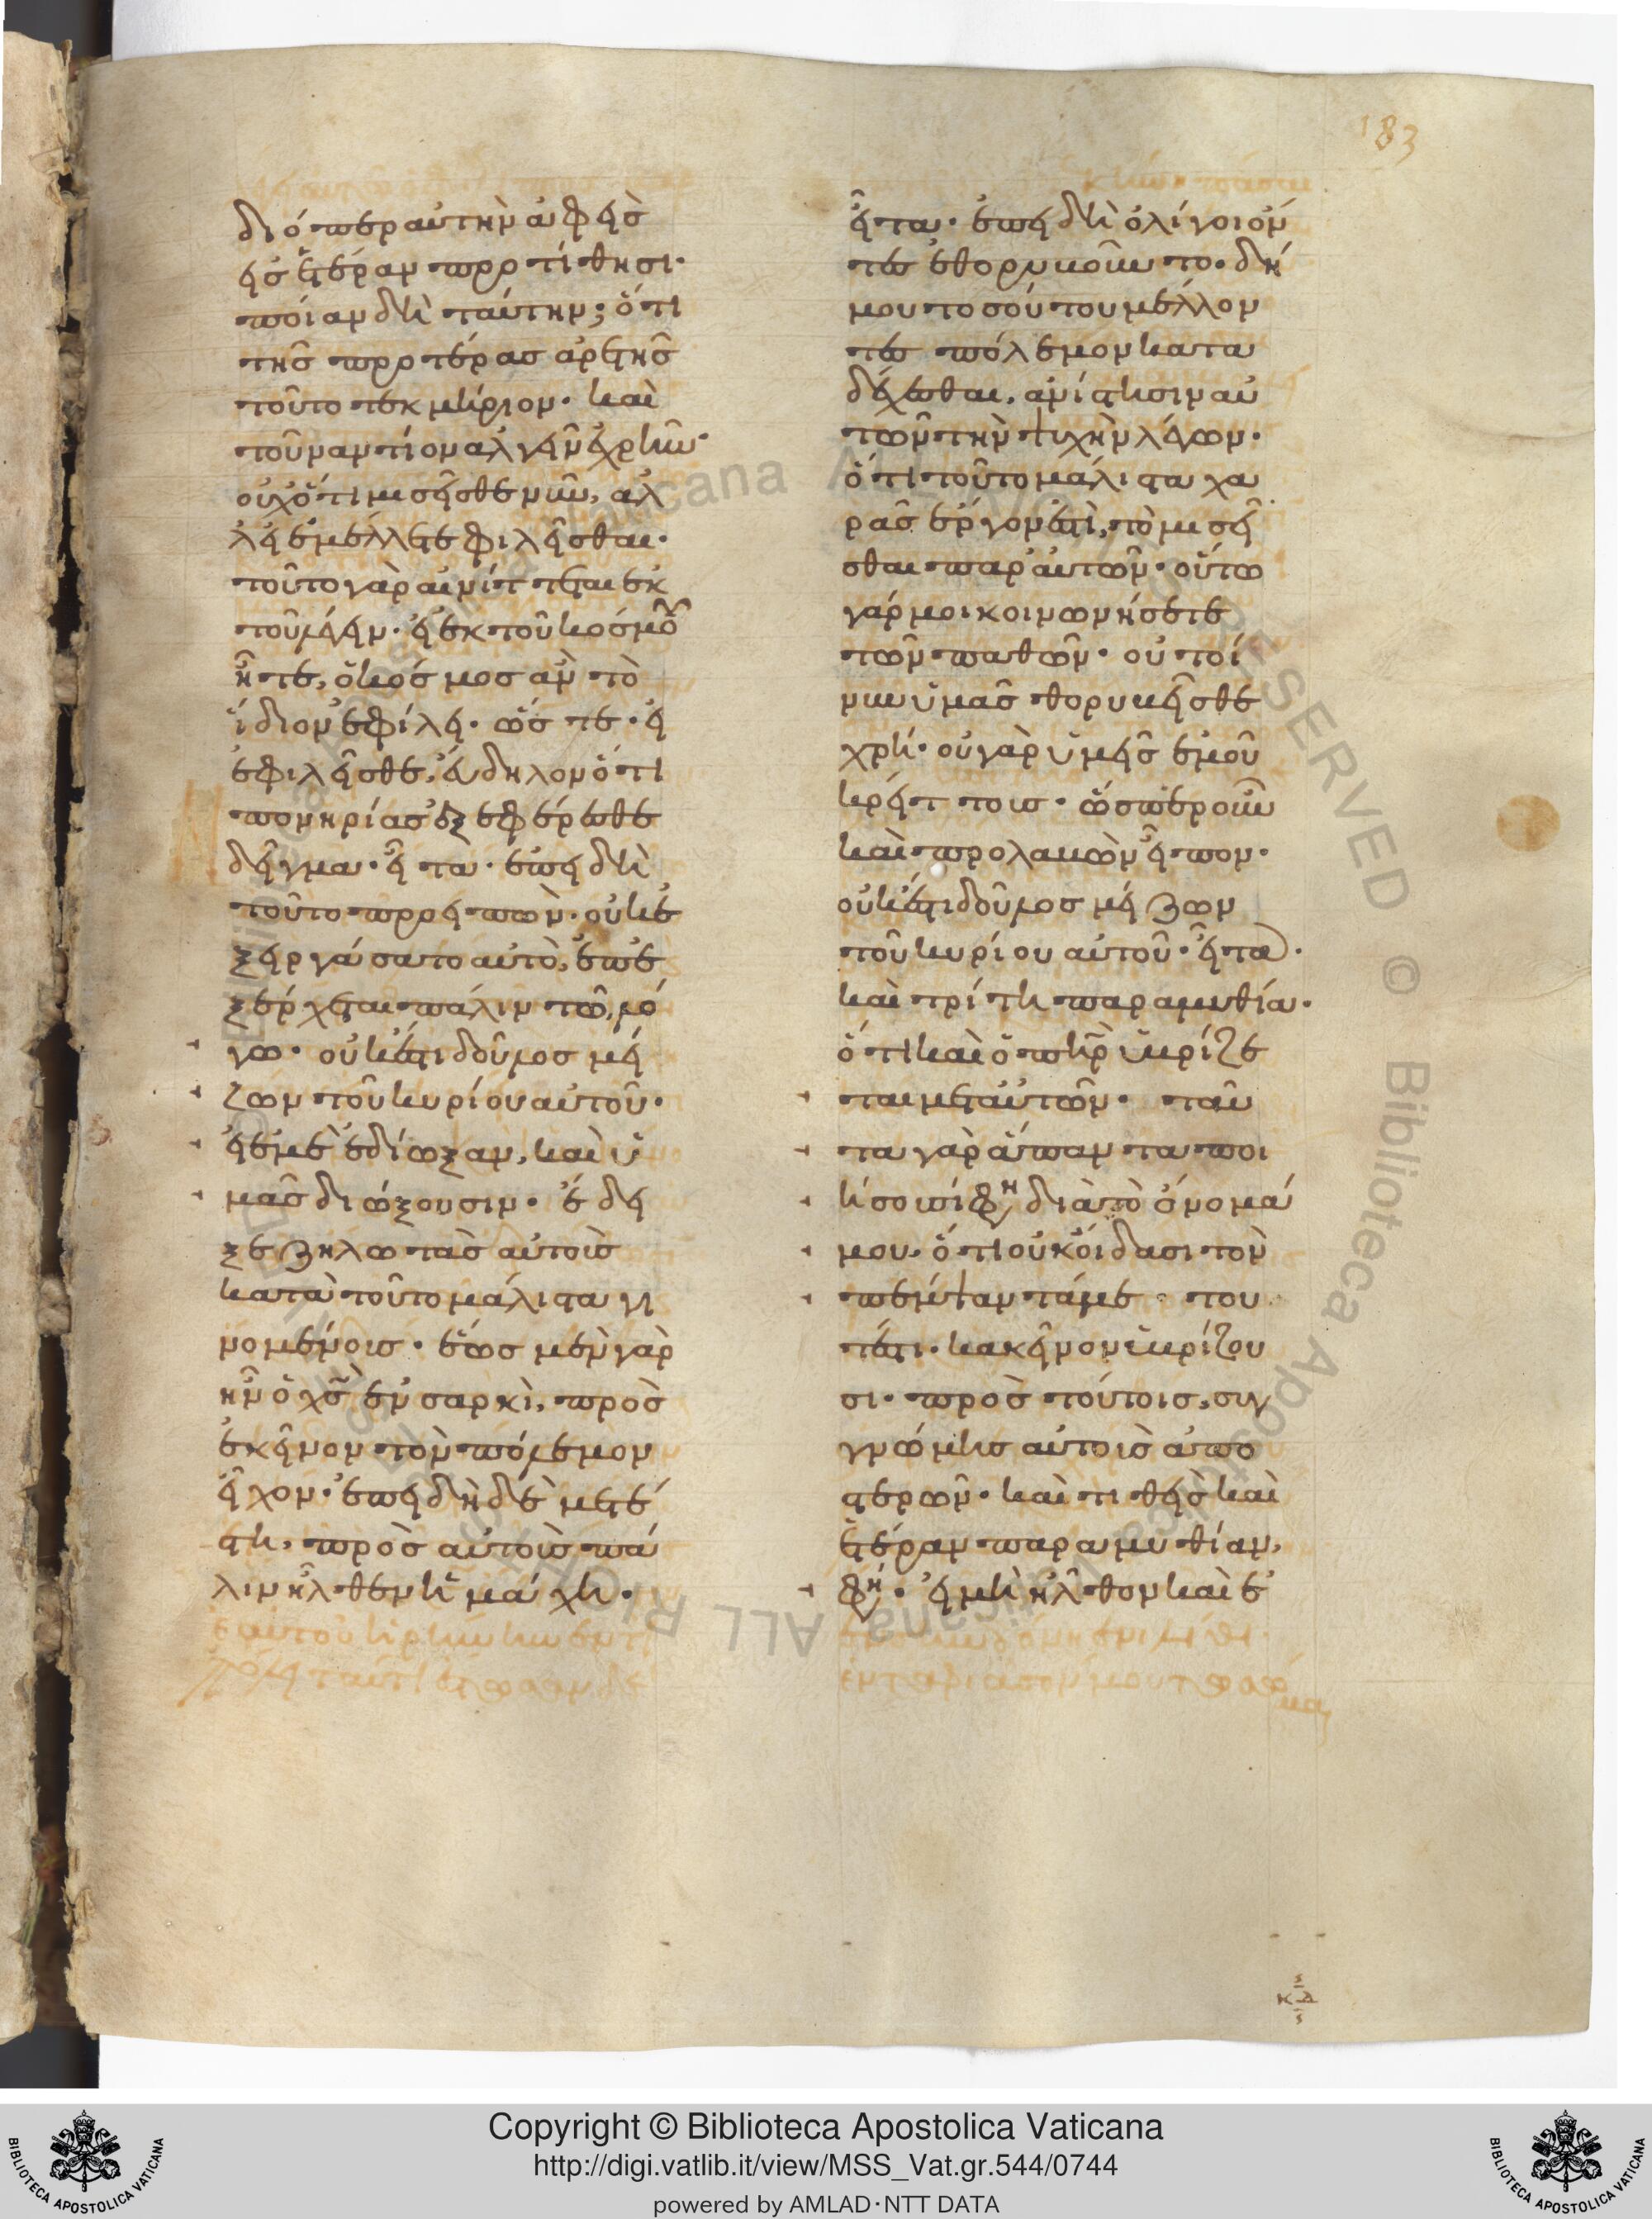 183
διόπερ αὐτὴν ἀφεὶς
εἰς ἑτέραν προτίθησι·
ποίαν δὴ ταύτην; ὅτι
τῆς προτέρας ἀρετῆς
τοῦτο τεκμήριον· καὶ
τοὐναντίον ἀλγεῖν ἐχρῆν·
οὐχ ὅτι μισεῖσθε νῦν, ἀλ
λ' εἰ ἐμέλλετε φιλεῖσθαι·
τοῦτο γὰρ αἰνίττεται ἐκ
τοῦ λέγειν· εἰ ἐκ τοῦ κόσμου
ἦτε, ὁ κόσμος ἂν τὸ
ἴδιον ἐφίλει· ὥστε· εἰ
ἐφιλεῖσθε, εὔδηλον ὅτι
πονηρίας ἐξεφέρεσθε
δεῖγμα· εἶτα· ἐπειδὴ
τοῦτο προειπὼν· οὐκ ἐ
ξειργάσατο αὐτὸ, ἐπε
ξέρχεται πάλιν τῷ λό
γω· οὐκ ἔστι δοῦλος μεί
ζων τοῦ κυρίου αὐτοῦ·
εἰ ἐμὲ ἐδίωξαν, καὶ ὑ
μᾶς διώξουσιν· ἔδει
ξε ζηλωτὰς αὐτοὺς
κατὰ τοῦτο μάλιστα γι
νομένους· ἕως μὲν γὰρ
ἦν ὁ χς ἐν σαρκὶ, πρὸς
ἐκεῖνον τὸν πόλεμον
εἶχον· ἐπειδὴ δὲ μετέ
στη, πρὸς αὐτοὺς πά
λιν ἦλθεν ἡ μάχη·
εἶτα· ἐπειδὴ ὀλίγοι ὄν
τες ἐθορυβοῦντο· δή
μου τοσούτου μέλλον
τες πόλεμον κατα
δέχεσθαι, ἀνίστησιν αὐ
τῶν τὴν ψυχὴν λέγων·
ὅτι τοῦτο μάλιστα χα
ρᾶς ἔργον ἐστὶ, τὸ μισεῖ
σθαι παρ' αὐτῶν· οὕτω
γάρ μοι κοινωνήσετε
τῶν παθῶν· οὐ τοί
νυν ὑμᾶς θορυβεῖσθε
χρή· οὐ γὰρ ὑμεῖς ἐμοῦ
κρείττους· ὥσπερ οὖν
καὶ προλαβὼν εἶπον·
οὐκ ἔστι δοῦλος μείζων
τοῦ κυρίου αὐτοῦ· εἶτα·
καὶ τρίτη παραμυθία·
ὅτι καὶ ὁ πηρ ὑβρίζε
ται μετ' αὐτῶν· ταῦ
τα γὰρ ἅπαντα ποι
ήσουσί φη διὰ τὸ ὄνομά
μου, ὅτι οὐκ οἴδασι τὸν
πέμψαντά με· του
τέστι· κἀκεῖνον ὑβρίζου
σι· πρὸς τούτοις, συγ
γνώμης αὐτοὺς ἀπο
στερῶν· καὶ τιθεὶς καὶ
ἑτέραν παραμυθίαν,
φη· εἰ μὴ ἦλθον καὶ ἐ
κδ
Copyright © Biblioteca Apostolica Vaticana
http://digi.vatlib.it/view/MSS_Vat.gr.544/0744
powered by AMLAD·NTT DATA